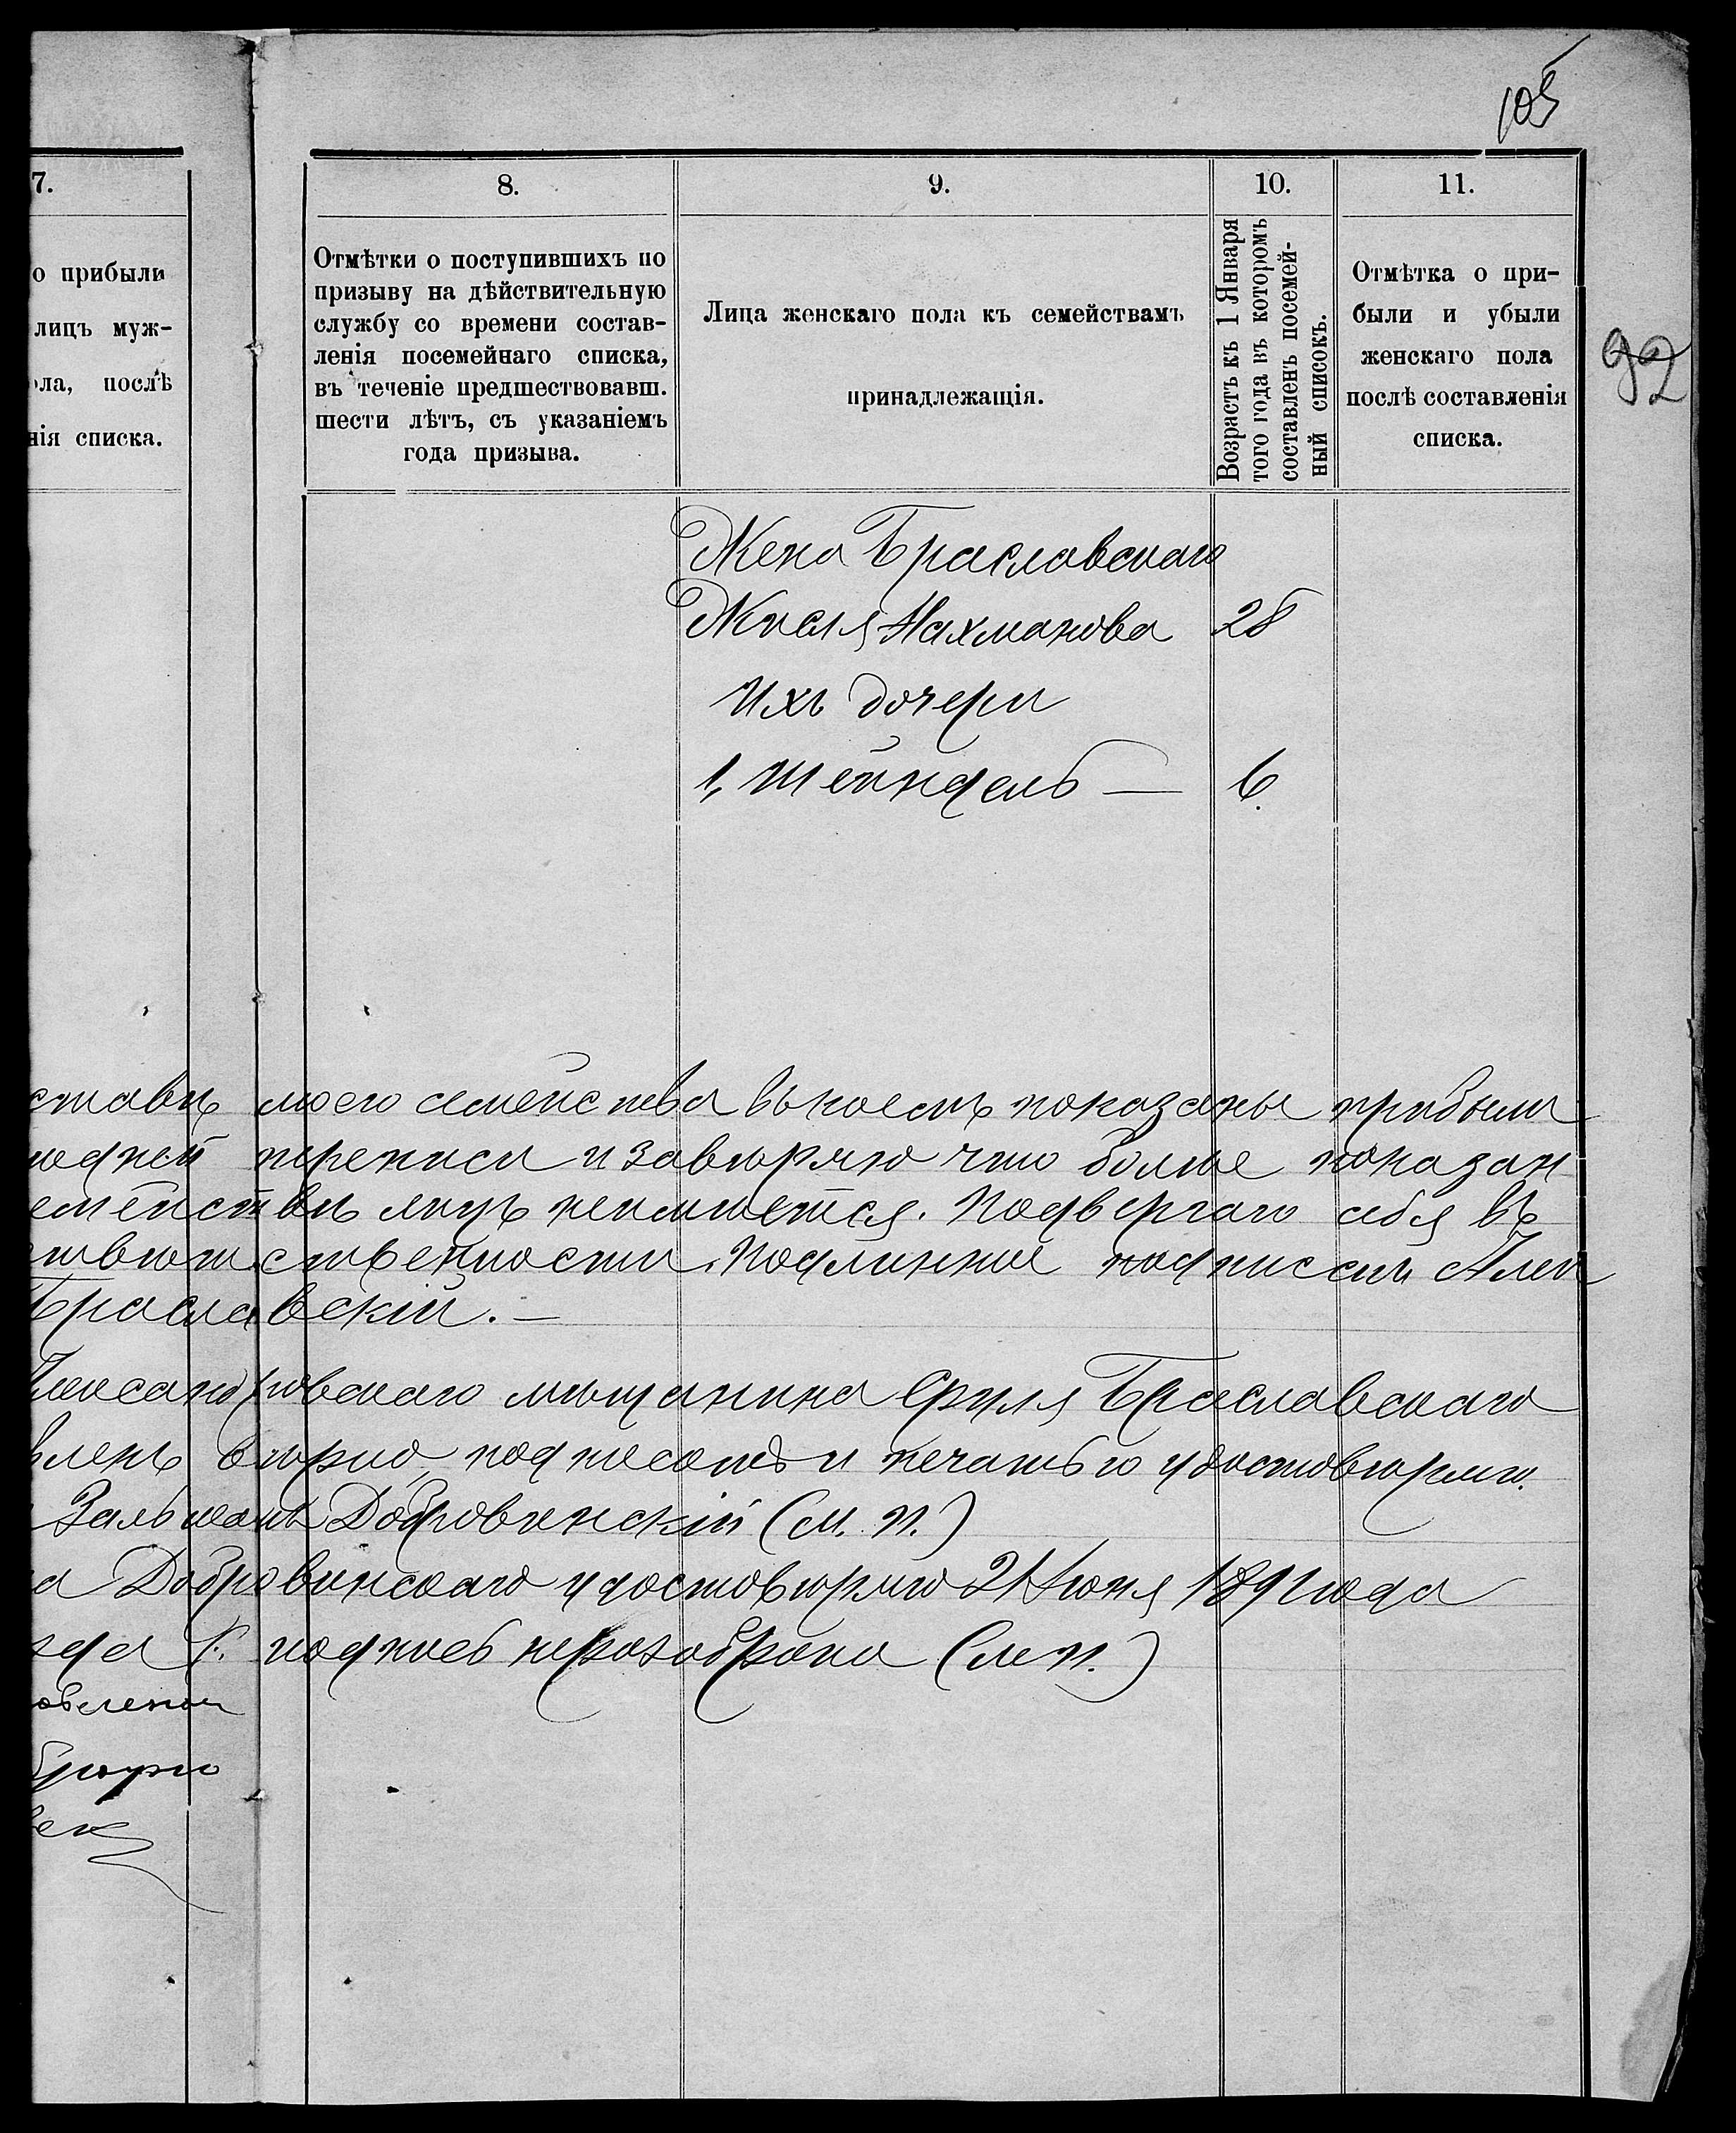 105
92
7.
о прибыли
лицъ муж-
ола, послѣ
нія списка.
8.
Отмѣтки о поступившихъ по
призыву на дѣйствительную
службу со времени состав-
ленія посемейнаго списка,
въ теченіе предшествовавш.
шести лѣтъ, съ указаніемъ
года призыва.
9.
Лица женскаго пола къ семействамъ
принадлежащія.
10.
Возрастъ къ 1 Января
того года въ которомъ
составленъ посемей-
ный списокъ.
11.
Отмѣтка о при-
были и убыли
женскаго пола
послѣ составленія
списка.
Жена Браславскаго
Жисля Нахманова 28
Ихъ дочери
1, Шейндель — 6.
ставъ моего семейства въ коемъ показаны прибыли
ней переписи и завѣряю что болѣе показан
емействѣ лицъ неимѣется. Подвергаю себя въ
ственности. Подлинное подписалъ Алек
Браславскій. —
Александровскаго мѣщанина Сруля Браславскаго
вленъ вѣрно, подписомъ и печатью удостовѣряю.
Зальманъ Добровинскій (М. П.)
а Добровинскаго удостовѣряю 21 Іюня 1891 года
зда К. подпись неразобрана (М. П.)